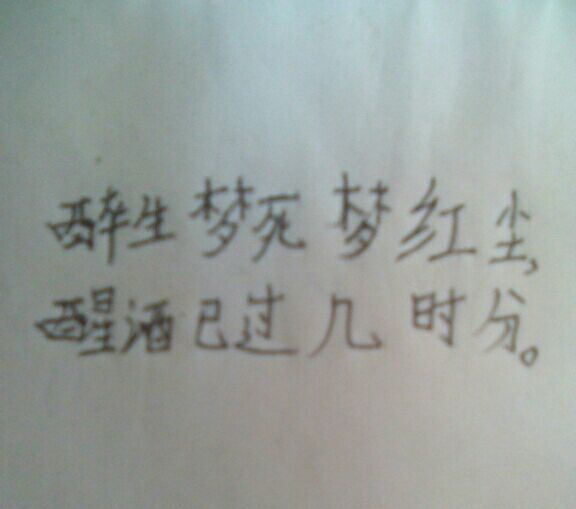 醉生梦死梦红尘,
醒酒已过几时分。